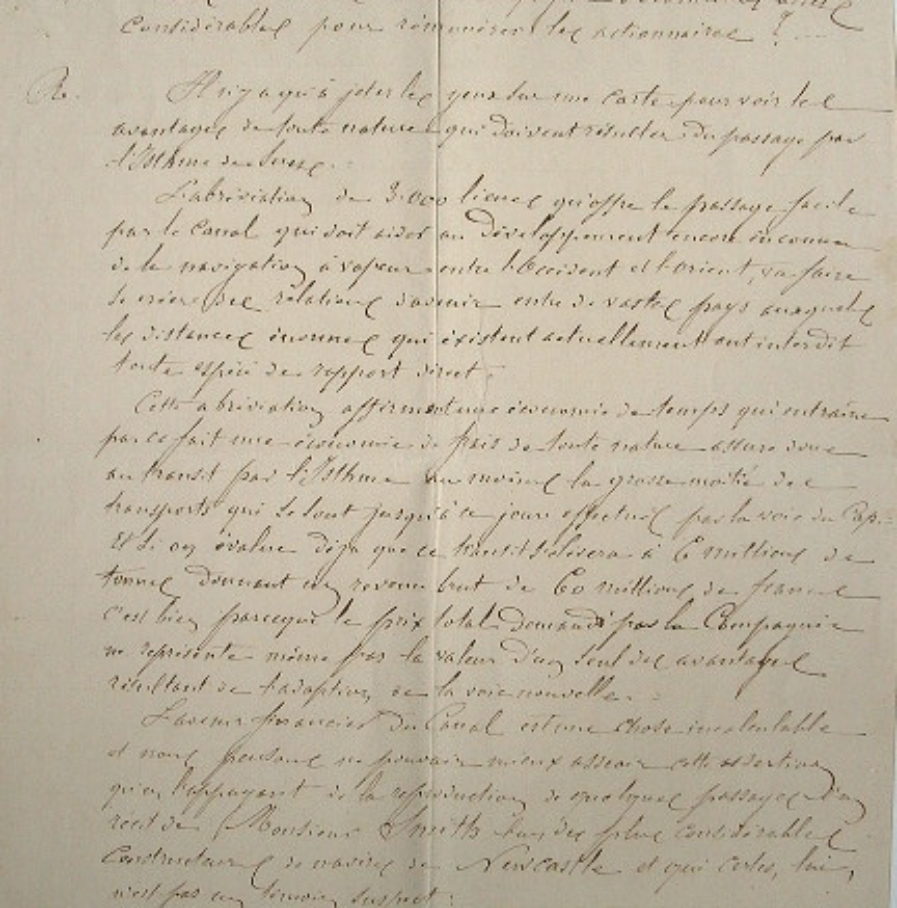 considérables pour rémunérer les actionnaires ? —
R. Il n'y a qu'à jeter les yeux sur une carte pour voir les
avantages de toute nature qui doivent résulter du passage par
l'Isthme de Suez. -
L'abréviation de 3.000 lieues qu'offre le passage facile
par le Canal qui doit aider au développement encore inconnu
de la navigation à vapeur entre l'Occident et l'Orient, va faire
se créer des relations d'avenir entre de vastes pays auxquels
les distances énormes qui existent actuellement ont interdit
toute espèce de rapport direct. -
Cette abréviation affirmant une économie de temps qui entraîne
par ce fait une économie de frais de toute nature assure donc
au transit par l'Isthme au moins la grosse moitié des
transports qui se sont jusqu'à ce jour effectués par la voie du Cap. -
Et si on évalue déjà que ce transit s'élèvera à 6 millions de
tonnes donnant un revenu brut de 60 millions de francs
c'est bien parceque le prix total demandé par la Compagnie
ne représente même pas la valeur d'un seul des avantages
résultant de l'adoption de la voie nouvelle. -
L'avenir financier du Canal est une chose incalculable
et nous pensons ne pouvoir mieux asseoir cette assertion
qu'en l'appuyant de la reproduction de quelques passages d'un
récit de Monsieur Smith l'un des plus considérables
Constructeurs de navires de Newcastle et qui certes, lui,
n'est pas un témoin suspect :